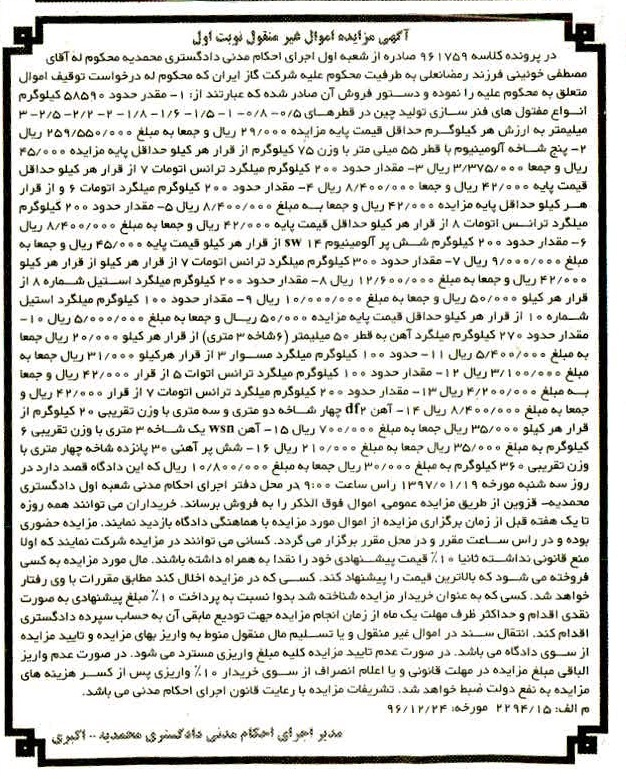 آگهی مزایده اموال غیر منقول نوبت اول
در پرونده کلاسه ۹۶۱۷۵۹ صادره از شعبه اول اجرای احکام مدنی دادگستری محمدیه محکوم له آقای
مصطفی خوئینی فرزند رمضانعلی به طرفیت محکوم علیه شرکت گاز ایران که محکوم له درخواست توقیف اموال
متعلق به محکوم علیه را نموده و دستور فروش آن صادر شده که عبارتند از: ۱- مقدر حدود ۵۸۵۹۰ کیلوگرم
انواع مفتول های فنر سازی تولید چین در قطرهای ۰/۵- ۰/۸- ۱- ۱/۵- ۱/۶- ۱/۸- ۲- ۲/۲- ۲/۵- ۳
میلیمتر به ارزش هر کیلوگرم حداقل قیمت پایه مزایده ۲۹/۰۰۰ ریال و جمعا به مبلغ ۲۵۹/۵۵۰/۰۰۰ ریال
۲- پنج شاخه آلومینیوم با قطر ۵۵ میلی متر با وزن ۷۵ کیلوگرم از قرار هر کیلو حداقل پایه مزایده ۴۵/۰۰۰
ریال و جمعا ۳/۳۷۵/۰۰۰ ریال ۳- مقدار حدود ۲۰۰ کیلوگرم میلگرد ترانس اتومات ۷ از قرار هر کیلو حداقل
قیمت پایه ۴۲/۰۰۰ ریال و جمعا ۸/۴۰۰/۰۰۰ ریال ۴- مقدار حدود ۲۰۰ کیلوگرم میلگرد اتومات ۶ و از قرار
هر کیلو حداقل پایه مزایده ۴۲/۰۰۰ ریال و جمعا به مبلغ ۸/۴۰۰/۰۰۰ ریال ۵- مقدار حدود ۲۰۰ کیلوگرم
میلگرد ترانس اتومات ۸ از قرار هر کیلو حداقل قیمت پایه ۴۲/۰۰۰ ریال و جمعا به مبلغ ۸/۴۰۰/۰۰۰ ریال
۶- مقدار حدود ۲۰۰ کیلوگرم شش پر آلومینیوم ۱۴ sw از قرار هر کیلو قیمت پایه ۴۵/۰۰۰ ریال و جمعا به
مبلغ ۹/۰۰۰/۰۰۰ ریال ۷- مقدار حدود ۳۰۰ کیلوگرم میلگرد ترانس اتومات ۷ از قرار هر کیلو از قرار هر کیلو
۴۲/۰۰۰ ریال و جمعا به مبلغ ۱۲/۶۰۰/۰۰۰ ریال ۸- مقدار حدود ۲۰۰ کیلوگرم میلگرد استیل شماره ۸ از
قرار هر کیلو ۵۰/۰۰۰ ریال و جمعا به مبلغ ۱۰/۰۰۰/۰۰۰ ریال ۹- مقدار حدود ۱۰۰ کیلوگرم میلگرد استیل
شماره ۱۰ از قرار هر کیلو حداقل قیمت پایه مزایده ۵۰/۰۰۰ ریال و جمعا به مبلغ ۵/۰۰۰/۰۰۰ ریال ۱۰-
مقدار حدود ۲۷۰ کیلوگرم میلگرد آهن به قطر ۵۰ میلیمتر (۶شاخه ۳ متری) از قرار هر کیلو ۲۰/۰۰۰ ریال جمعا
به مبلغ ۵/۴۰۰/۰۰۰ ریال ۱۱- حدود ۱۰۰ کیلوگرم میلگرد مسوار ۳ از قرار هرکیلو ۳۱/۰۰۰ ریال جمعا به
مبلغ ۳/۱۰۰/۰۰۰ ریال ۱۲- مقدار حدود ۱۰۰ کیلوگرم میلگرد ترانس اتوات ۵ از قرار ۴۲/۰۰۰ ریال و جمعا
به مبلغ ۴/۲۰۰/۰۰۰ ریال ۱۳- مقدار حدود ۲۰۰ کیلوگرم میلگرد ترانس اتومات ۷ از قرار ۴۲/۰۰۰ ریال و
جمعا به مبلغ ۸/۴۰۰/۰۰۰ ریال ۱۴- آهن df۲ چهار شاخه دو متری و سه متری با وزن تقریبی ۲۰ کیلوگرم از
قرار هر کیلو ۳۵/۰۰۰ ریال جمعا به مبلغ ۷۰۰/۰۰۰ ریال ۱۵- آهن wsn یک شاخه ۳ متری با وزن تقریبی ۶
کیلوگرم به مبلغ ۳۵/۰۰۰ ریال جمعا به مبلغ ۲۱۰/۰۰۰ ریال ۱۶- شش پر آهنی ۳۰ پانزده شاخه چهار متری با
وزن تقریبی ۳۶۰ کیلوگرم به مبلغ ۳۰/۰۰۰ ریال جمعا به مبلغ ۱۰/۸۰۰/۰۰۰ ریال که این دادگاه قصد دارد در
روز سه شنبه مورخه ۱۳۹۷/۰۱/۱۹ راس ساعت ۹:۰۰ در محل دفتر اجرای احکام مدنی شعبه اول دادگستری
محمدیه- قزوین از طریق مزایده عمومی، اموال فوق الذکر را به فروش برساند. خریداران می توانند همه روزه
تا یک هفته قبل از زمان برگزاری مزایده از اموال مورد مزایده با هماهنگی دادگاه بازدید نمایند. مزایده حضوری
بوده و در راس ساعت مقرر و در محل مقرر برگزار می گردد. کسانی می توانند در مزایده شرکت نمایند که اولا
منع قانونی نداشته ثانیا ۱۰٪ قیمت پیشنهادی خود را نقدا به همراه داشته باشند. مال مورد مزایده به کسی
فروخته می شود که بالاترین قیمت را پیشنهاد کند. کسی که در مزایده اخلال کند مطابق مقررات با وی رفتار
خواهد شد. کسی که به عنوان خریدار مزایده شناخته شد بدوا نسبت به پرداخت ۱۰٪ مبلغ پیشنهادی به صورت
نقدی اقدام و حداکثر ظرف مهلت یک ماه از زمان انجام مزایده جهت تودیع مابقی آن به حساب سپرده دادگستری
اقدام کند. انتقال سند در اموال غیر منقول و یا تسلیم مال منقول منوط به واریز بهای مزایده و تایید مزایده
از سوی دادگاه می باشد. در صورت عدم تایید مزایده کلیه مبلغ واریزی مسترد می شود. در صورت عدم واریز
الباقی مبلغ مزایده در مهلت قانونی و یا اعلام انصراف از سوی خریدار ۱۰٪ واریزی پس از کسر هزینه های
مزایده به نفع دولت ضبط خواهد شد. تشریفات مزایده با رعایت قانون اجرای احکام مدنی می باشد.
م الف: ۲۲۹۴/۱۵ مورخه: ۹۶/۱۲/۲۴
مدیر اجرای احکام مدنی دادگستری محمدیه -- اکبری